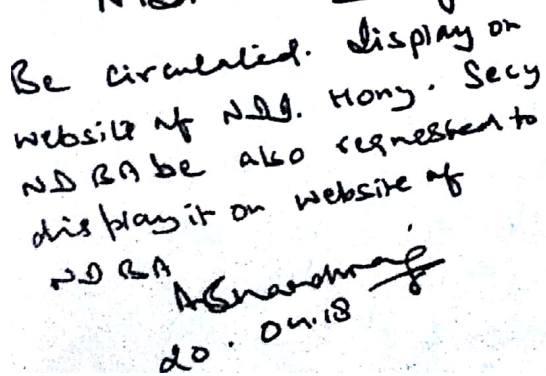 Be circulated. display on
website of NDD. Hony. Secy
NDBA be also requested to
display it on website of
NDBA
20.04.18